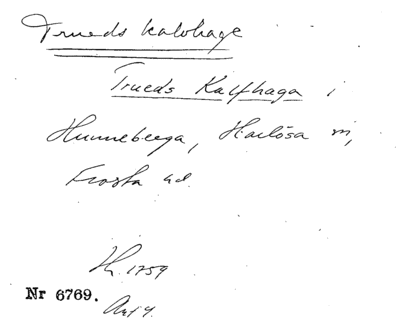 Trueds kalvhage
Trueds Kalfhaga i
Hunneberga, Harlösa sn,
Frosta hd.
Lh. 1759
Nr 6769.
Akt 4.